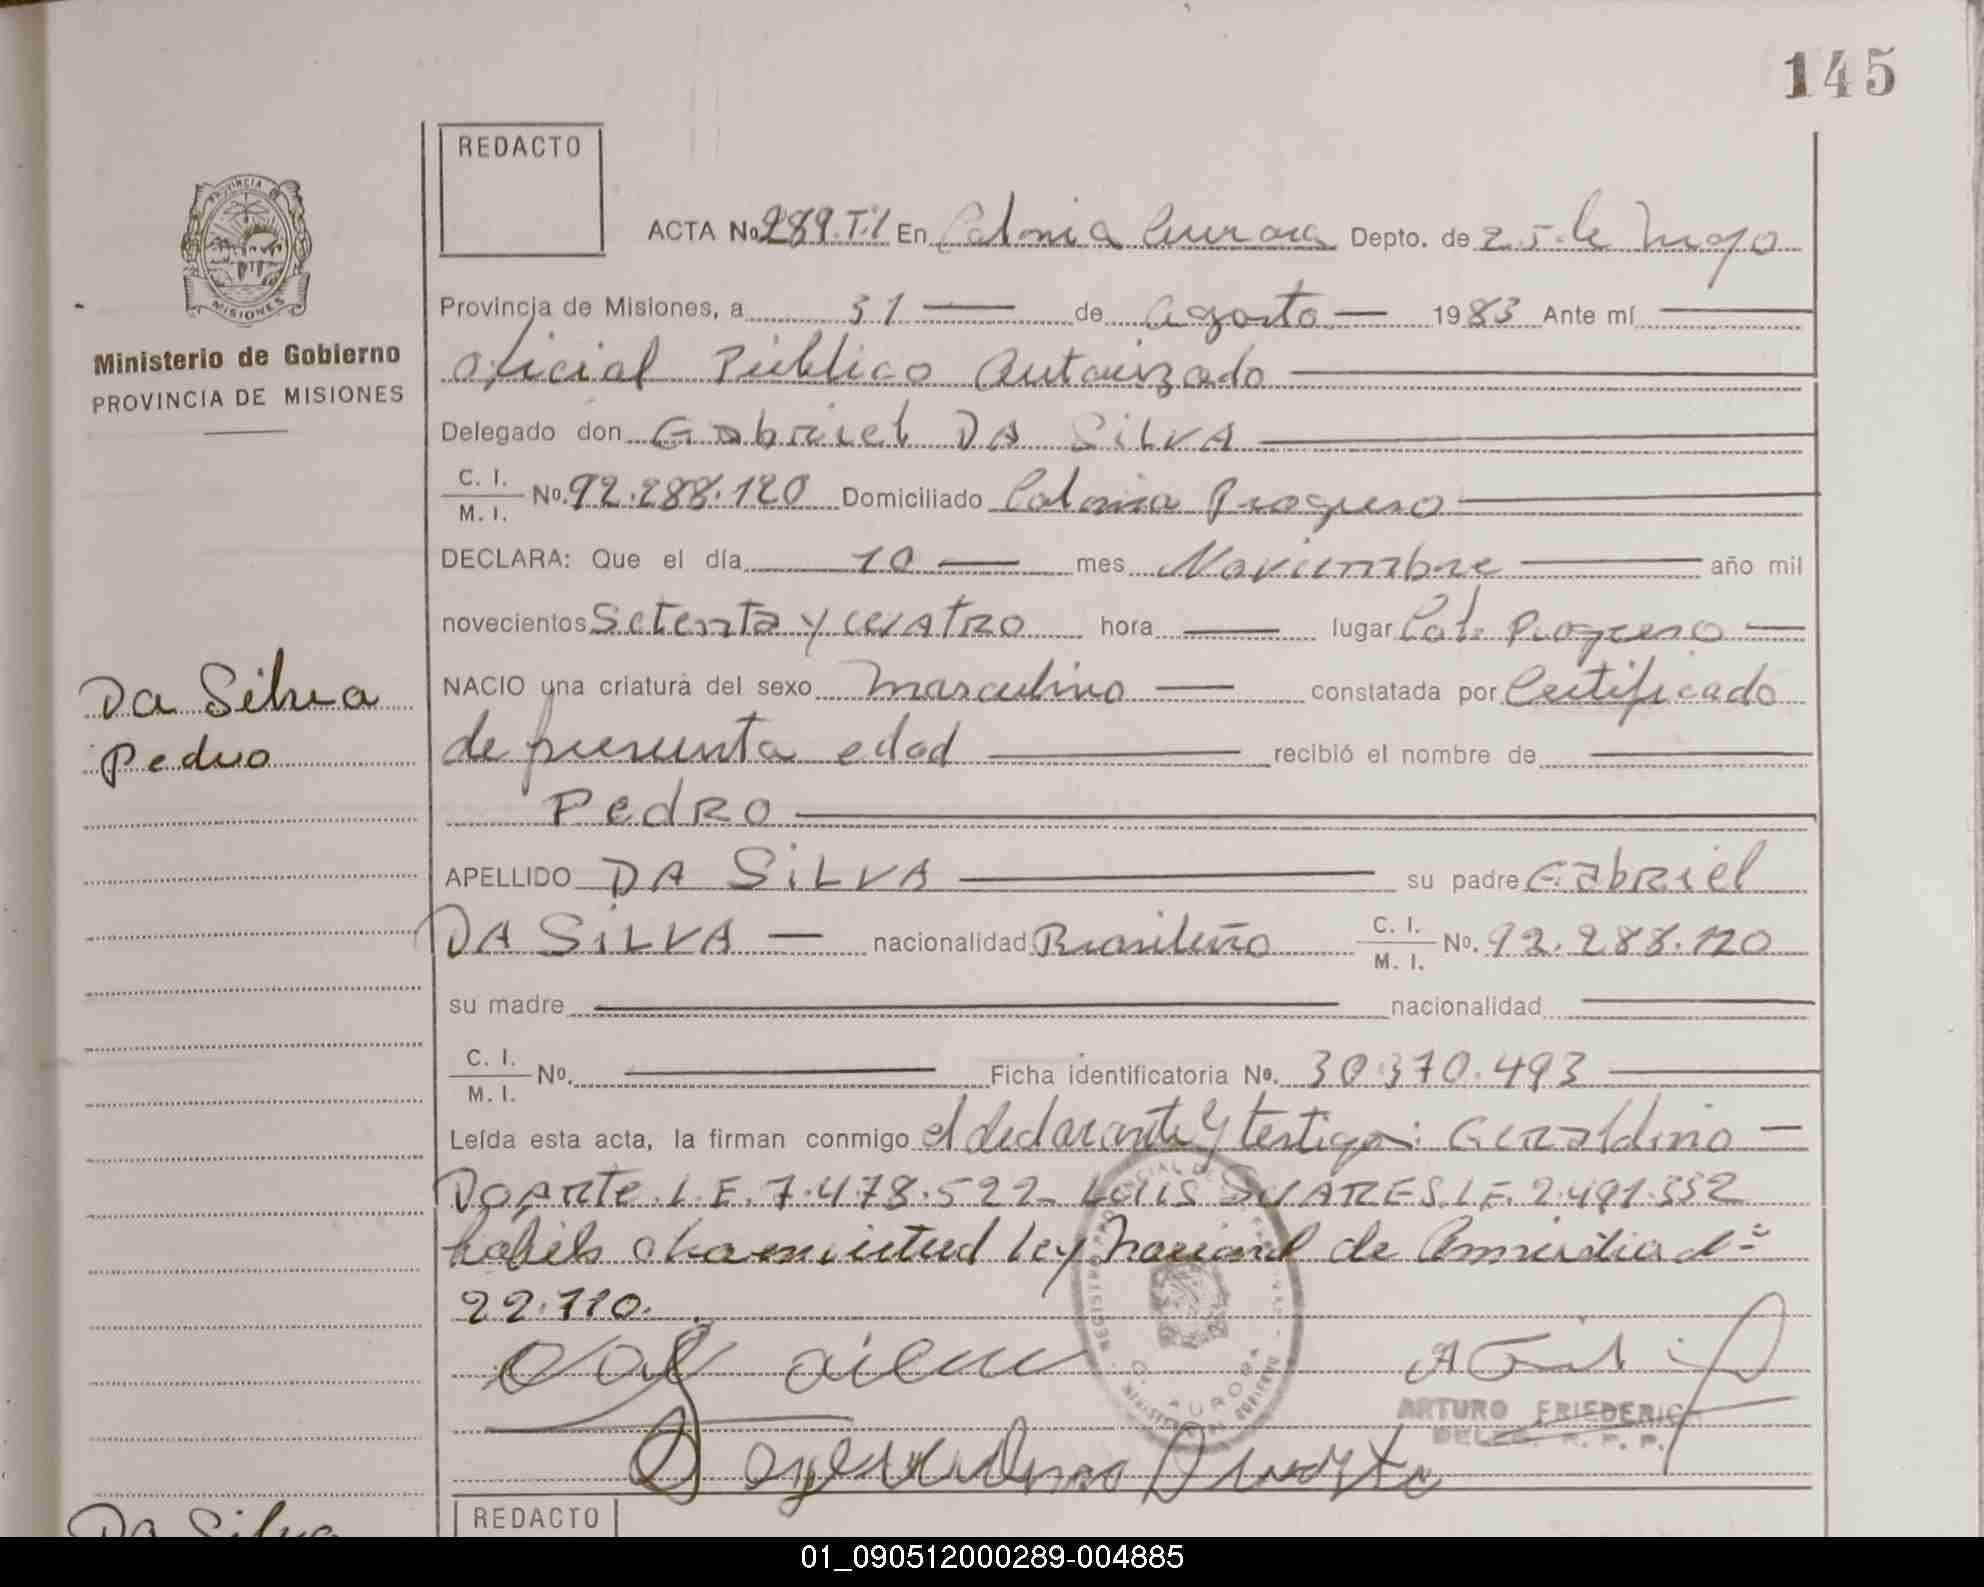 145
REDACTO
ACTA No 289.T.1 En Colonia Aurora Depto. de 25 de Mayo
Provincia de Misiones, a 31 de agosto 1983 Ante mí
Oficial Público Autorizado
Delegado don Gabriel DA SILVA
C. I.
M. I.
No. 92.288.120 Domiciliado Colonia Progreso
DECLARA: Que el día 10 mes Noviembre año mil
novecientos Setenta y cuatro hora lugar Col. Progreso
NACIO una criatura del sexo masculino constatada por Certificado
de presunta edad recibió el nombre de
Pedro
APELLIDO DA SILVA su padre Gabriel
DA SILVA nacionalidad Brasileño C. I. M. I. No. 92.288.120
su madre nacionalidad
C. I.
M. I.
No. Ficha identificatoria No. 30.370.493
Leída esta acta, la firman conmigo el declarante y testigos: Geraldino
DOARTE L.E. 7.478.522 LUIS SUARES L.E. 2.491.552
habils Ley Nacional de Amnistia
22.710.
Duarte
ARTURO FRIEDERICH
DELEG. R. P. P.
AURORA
PROVINCIA
MISIONES
Ministerio de Gobierno
PROVINCIA DE MISIONES
Da Silva
Pedro
Da Silva
REDACTO
01_090512000289-004885